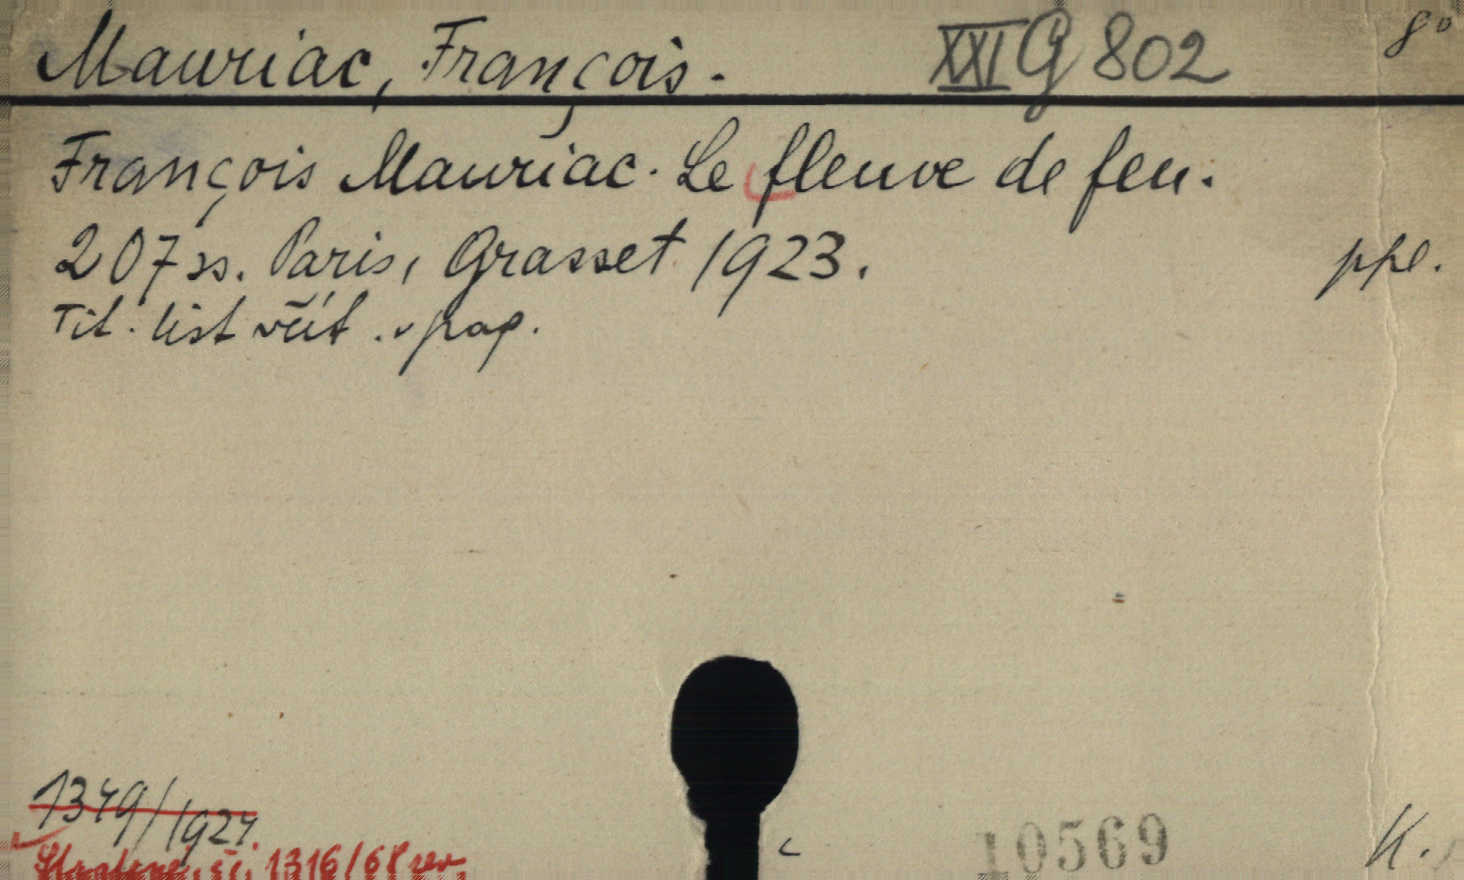 Mauriac, François. XXI G 802 8°
François Mauriac. Le fleuve de feu.
207 ss. Paris, Grasset 1923. ppl.
Tit. list včít. v pag.
1349/1924.
č. 1316/68 rev.
10569 K.